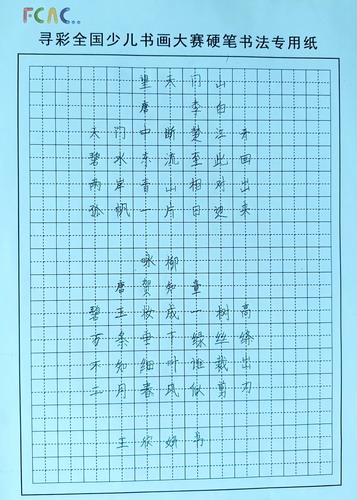 FCAC
寻彩全国少儿书画大赛硬笔书法专用纸
望天门山
唐 李白
天门中断楚江开
碧水东流至此回
两岸青山相对出
孤帆一片日边来
咏柳
唐 贺知章
碧玉妆成一树高
万条垂下绿丝绦
不知细叶谁裁出
二月春风似剪刀
王欣妍书